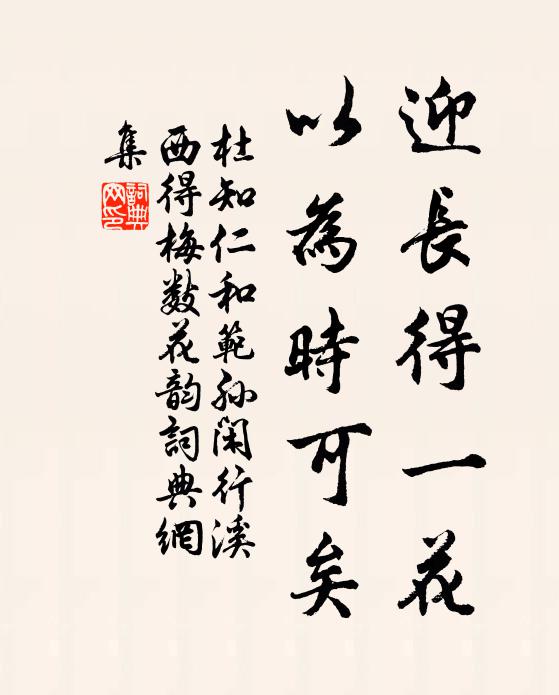 迎長得一花
以為時可矣
杜知仁和範孫閑行溪
西得梅数花韵詞典網
集
詞典
网印